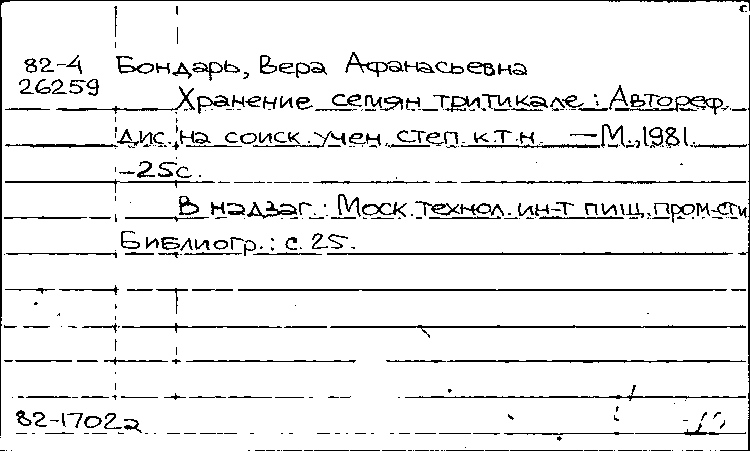 82-4 Бондарь, Вера Афанасьевна
26259
Хранение семян тритикале : Автореф.
дис. на соиск. учен. степ. к.т.н. —М., 1981.
-25с.
В надзаг.: Моск. технол. ин-т пищ. пром-сти
Библиогр.: с. 25.
82-17022